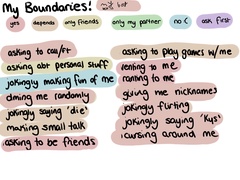 My Boundaries!
yes
depends
only friends
only my partner
no (
ask first
asking to call/FT
asking abt personal stuff
jokingly making fun of me
dming me randomly
jokingly saying 'die'
making small talk
asking to be friends
asking to play games w/me
venting to me
ranting to me
giving me nicknames
jokingly flirting
jokingly saying 'kys'
cursing around me